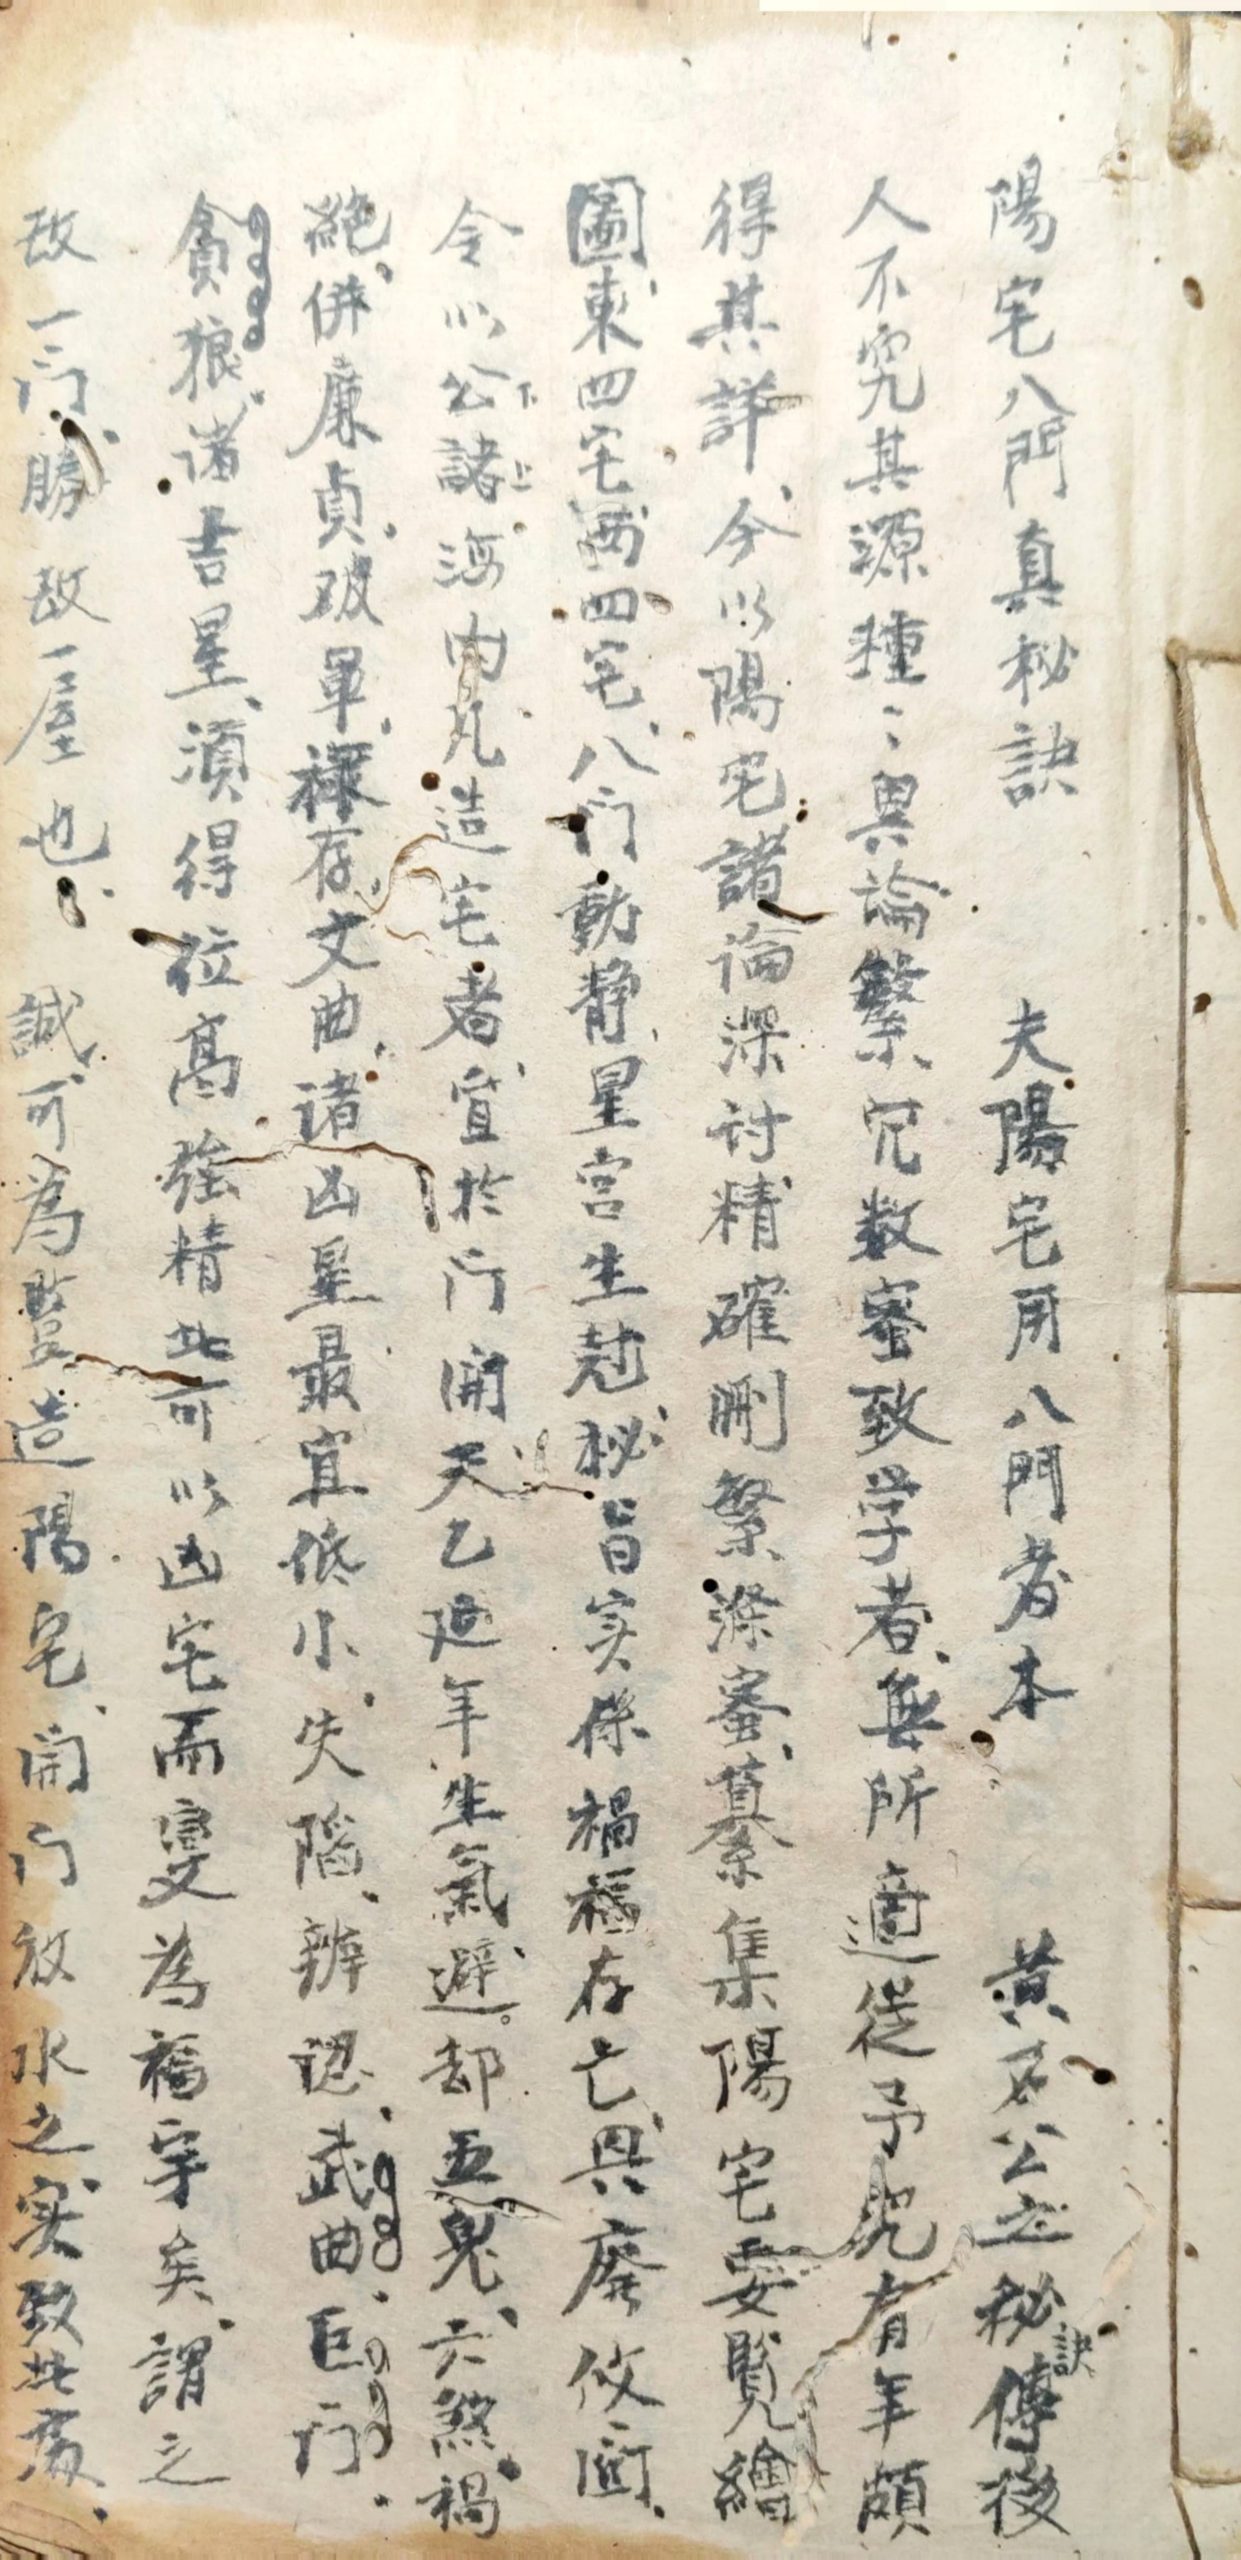 陽宅八門真秘訣　夫陽宅用八門者本　黃石公之秘訣傳後
人不究其源種々異論繁冗数密致学者無所適從予究有年頗
得其詳今以陽宅諸論深討精確刪繁滌密纂集陽宅要覧繪
圖東四宅西四宅八门動静星宮生尅秘旨实係禍福存亡興廃攸関
今以公諸下上海内凡造宅者宜於门開天乙延年生氣避却五鬼六煞禍
絕併廉貞破軍祿存文曲诸凶星最宜低小失陷辨認武曲巨门
貪狼诸吉星須得位高強精此可以凶宅而變為福宇矣謂之
改一门勝改一屋也誠可為豎造陽宅開门放水之实致此為